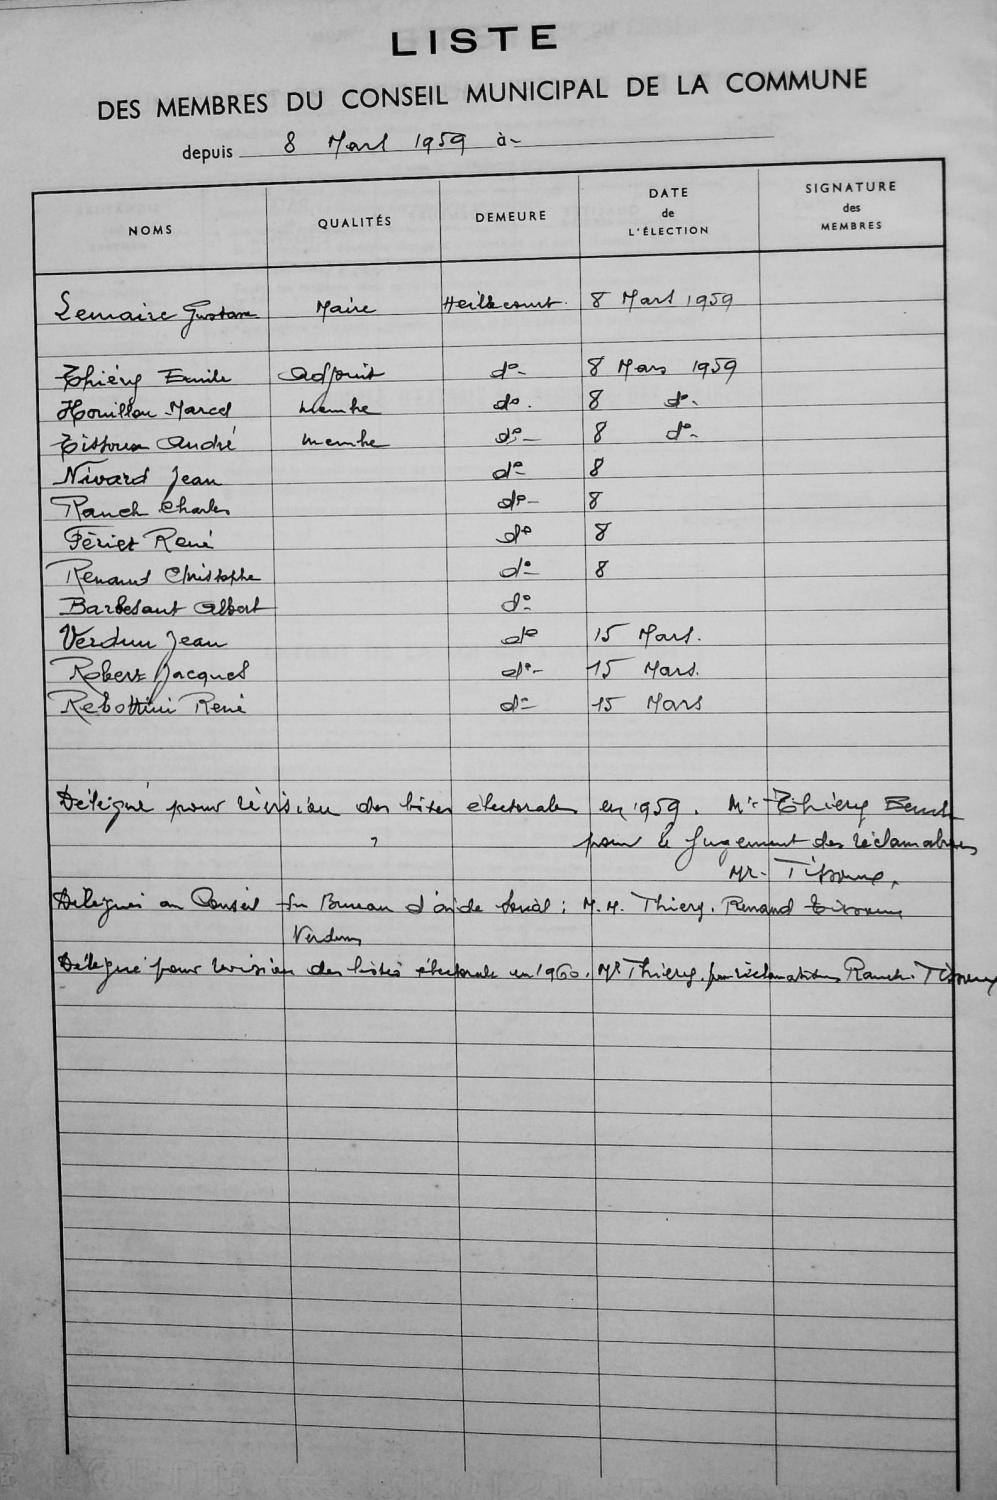 LISTE
DES MEMBRES DU CONSEIL MUNICIPAL DE LA COMMUNE
depuis 8 Mars 1959 à
NOMS QUALITÉS DEMEURE DATE de L'ÉLECTION SIGNATURE des MEMBRES
Lemaire Gustave Maire Heillecourt. 8 Mars 1959
Thiéry Emile Adjoint do- 8 Mars 1959
Houillon Marcel membre do. 8 do-
André membre do- 8 do-
Nivard Jean do 8
Rauch Charles do- 8
Fériet René do 8
Renaud Christophe do 8
Barbesant Albert do
Verdun Jean do 15 Mars.
Robert Jacques do- 15 Mars.
Rebottini René do 15 Mars
Délégué pour révision des listes électorales en 1959. Mr- Thiéry
pour le jugement des réclamations
Mr-
Délégués au Conseil du Bureau d'aide social : M.M. Thiery. Renaud
Verdun
Délégué pour revision des listes électorale en 1960. Mr Thiery. pr réclamations Rauch.